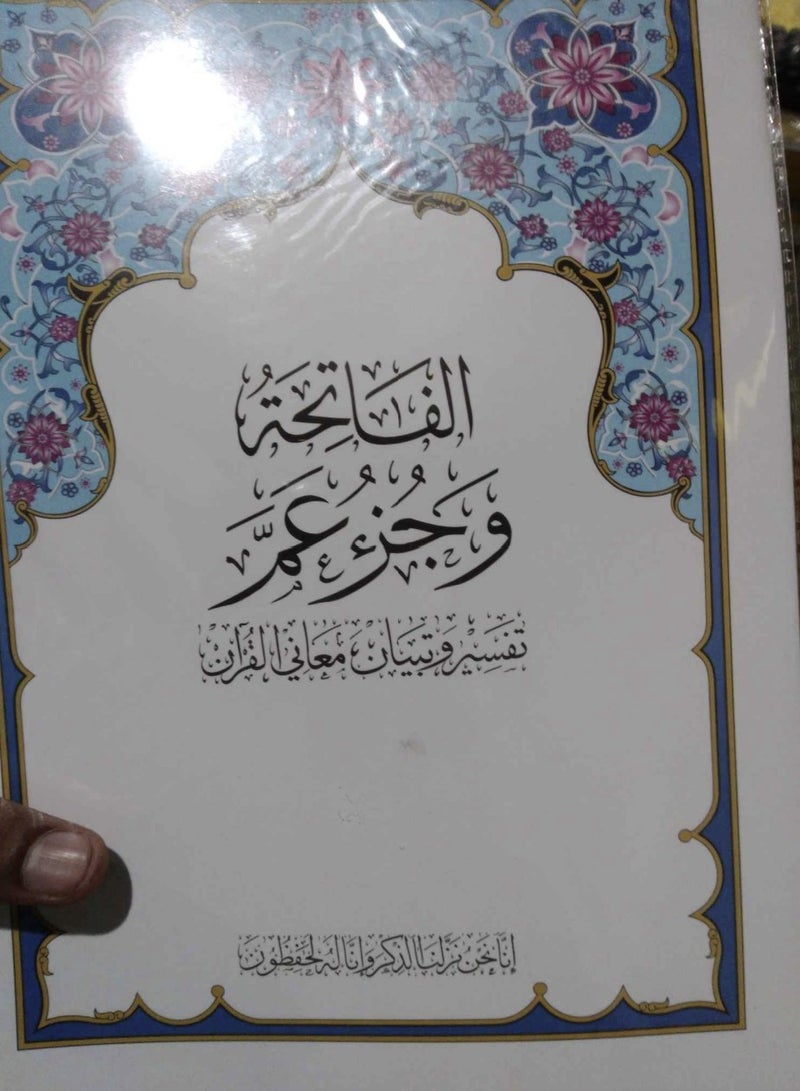 الفَاتِحَةُ
وَجُزْءُ عَمَّ
تَفْسِير وَتبيَان مَعَانِي القُرآن
إِنَّا نَحْنُ نَزَّلْنَا الذِّكْرَ وَإِنَّا لَهُ لَحَٰفِظُونَ